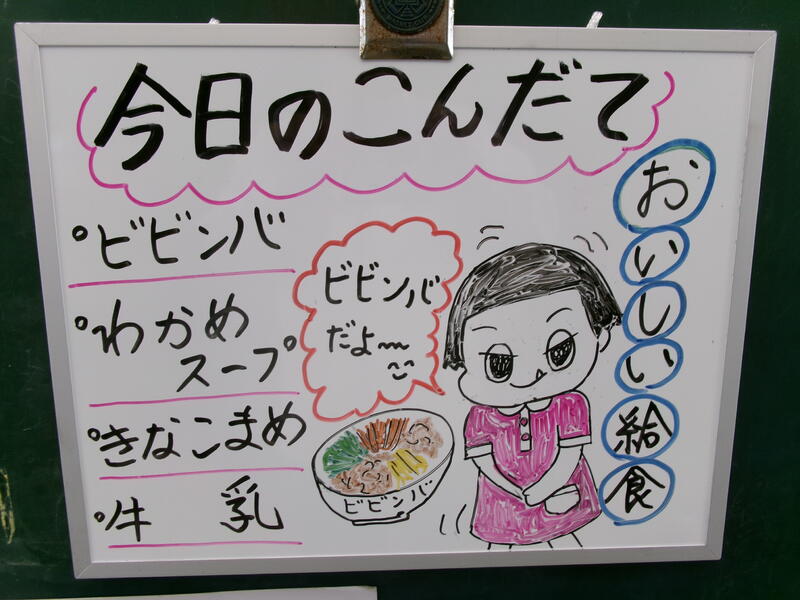 今日のこんだて
ビビンバ
わかめ
スープ
きなこまめ
牛 乳
ビビンバ
だよ〜
ビビンバ
おいしい給食